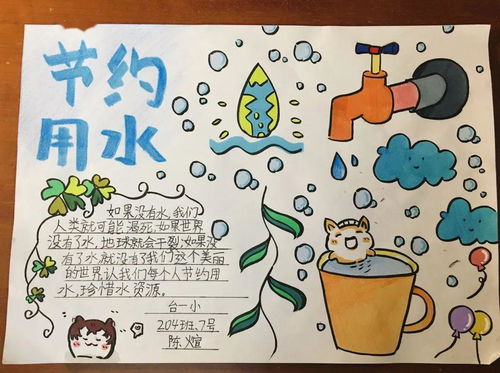 节约
用水
如果没有水,我们
人类就可能渴死,如果世界
没有了水,地球就会干裂,如果没
有了水就没有了我们这个美丽
的世界认我们每个人节约用
水,珍惜水资源。
台一小
204班、7号
陈煊